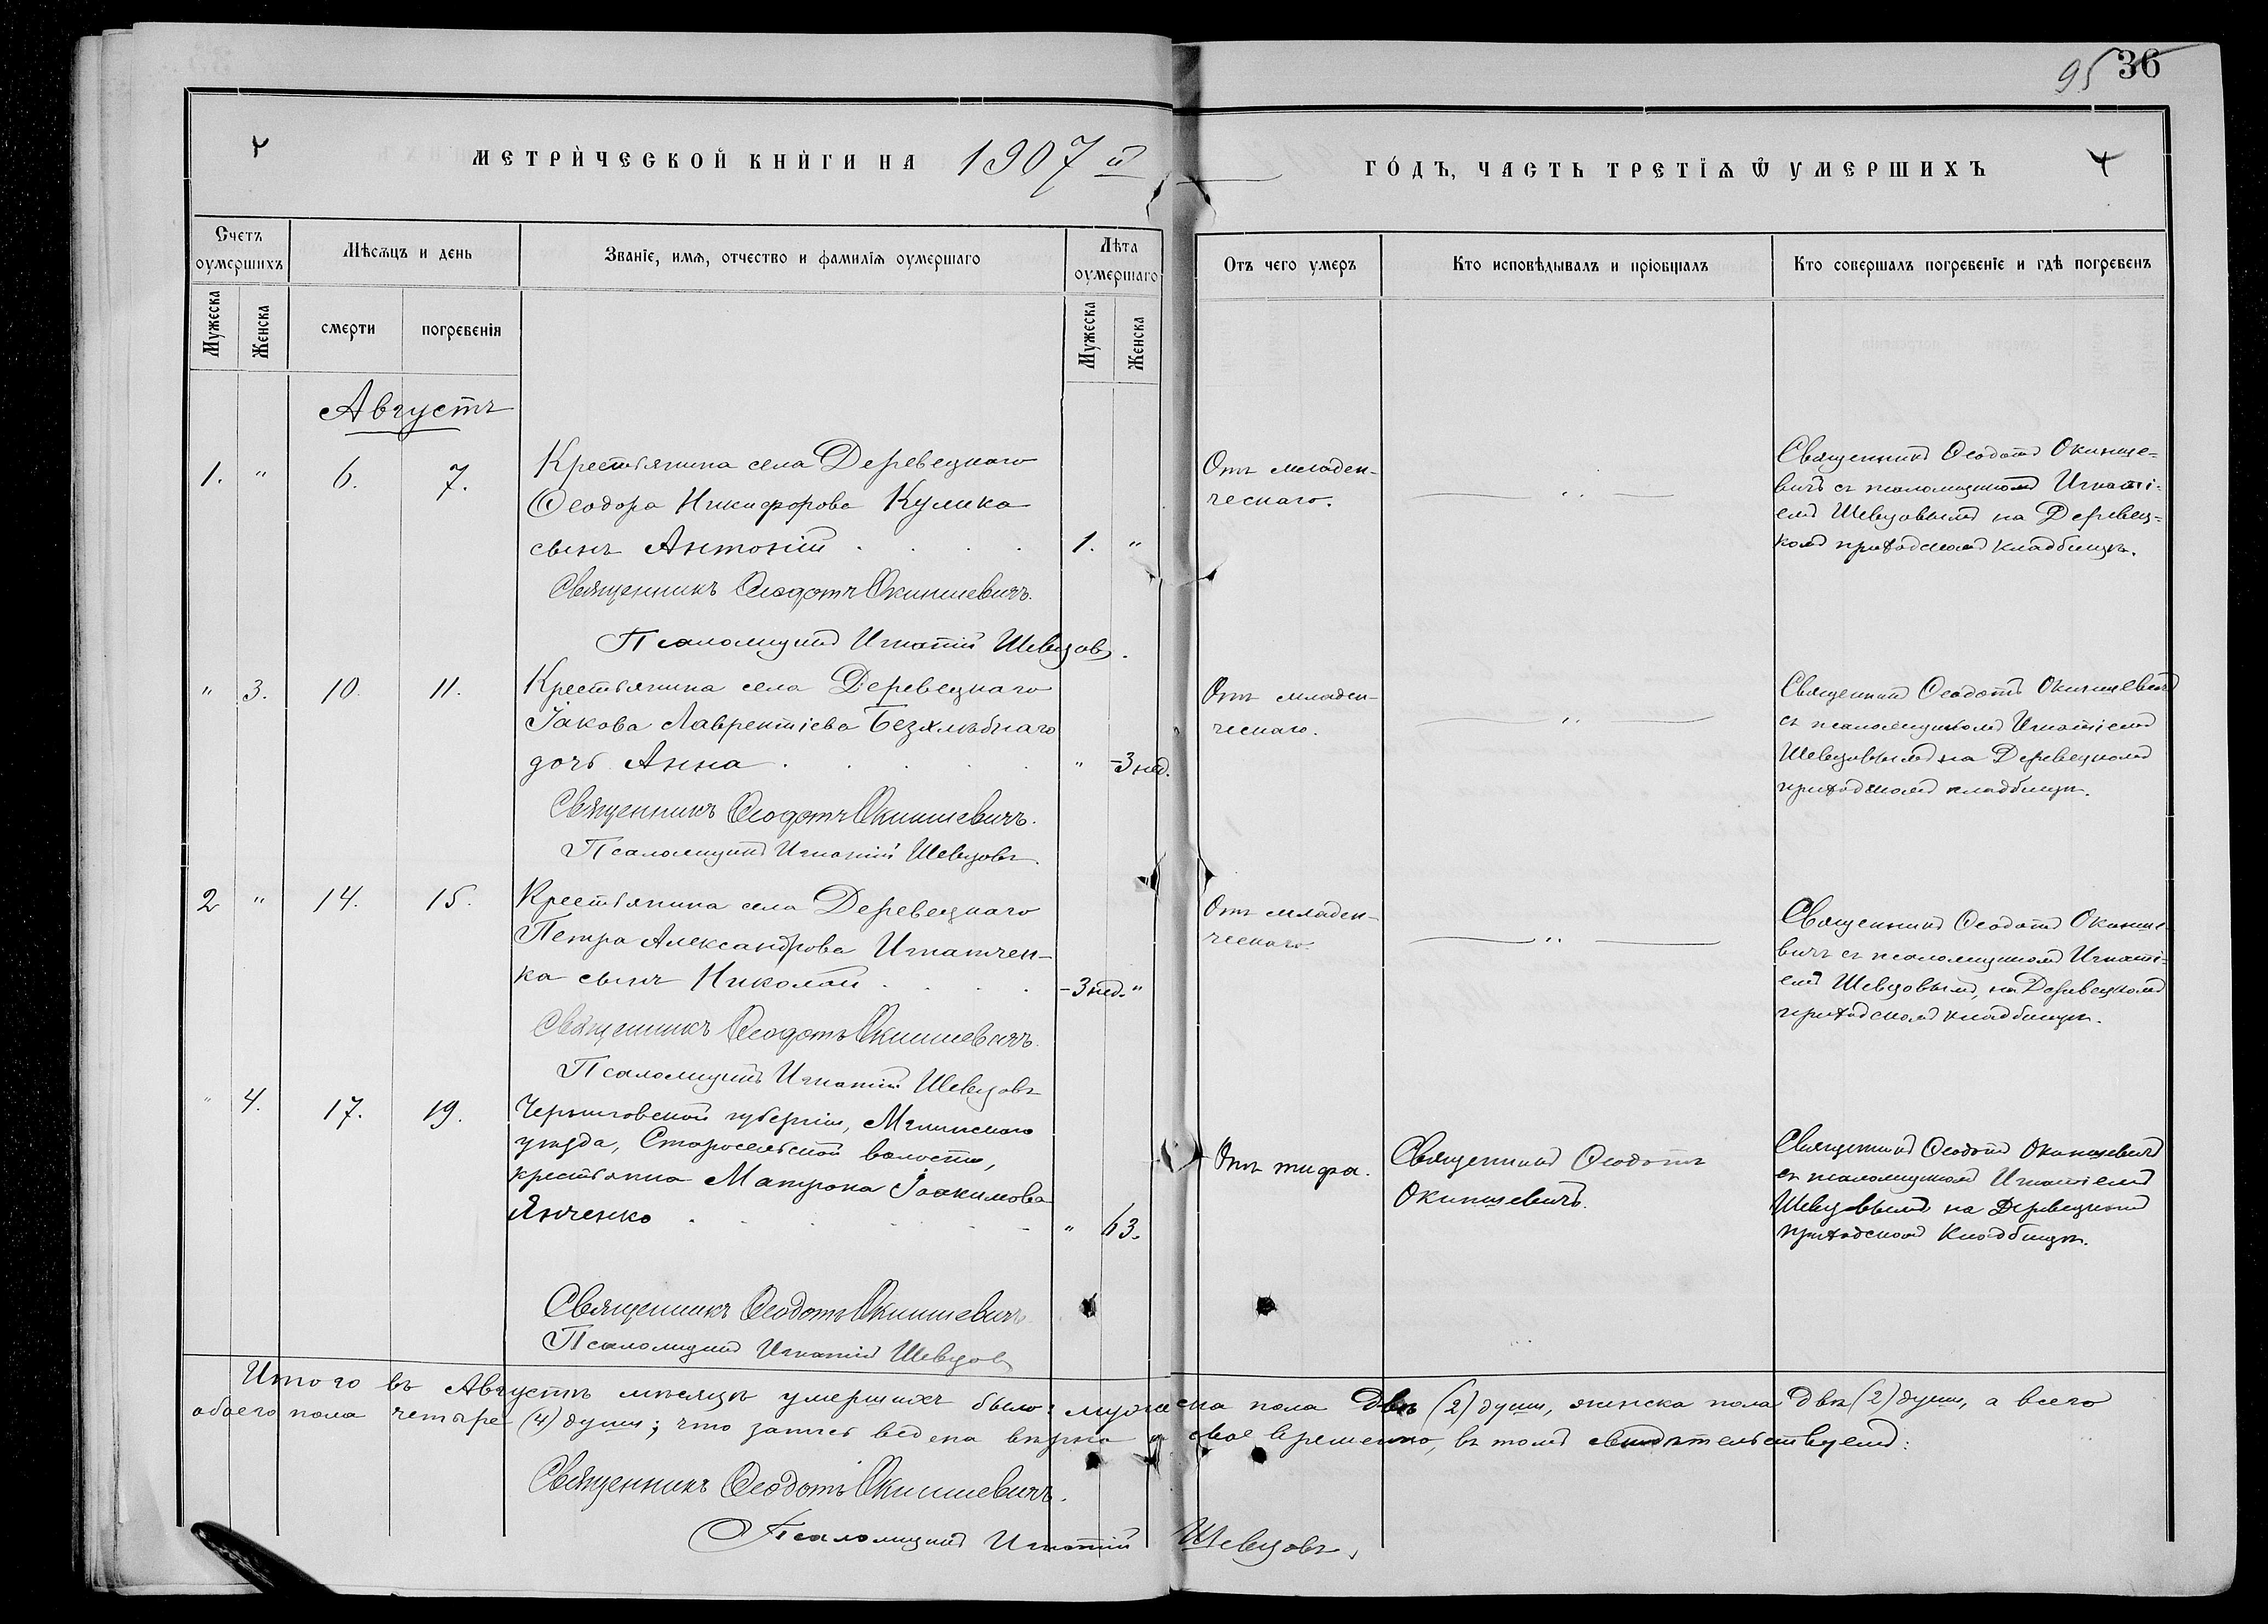 95 36
МЕТРИ́ЧЕСКОЙ КНИ́ГИ НА 1907й
ГО́ДЪ, ЧАСТЬ ТРЕТІѦ Ѿ УМЕРШИХЪ
Счетъ оумершихъ
Мѣсѧцъ и день
Званіе, имѧ, отчество и фамиліѧ оумершаго
Лѣта оумершаго
Отъ чего умеръ
Кто исповѣдывалъ и пріобщалъ
Кто совершалъ погребеніе и гдѣ погребенъ
Мужеска
Женска
смерти
погребенія
Мужеска
Женска
Августъ
1. " 6. 7.
Крестьянина села Деревецкаго
Ѳеодора Никифорова Кулика
сынъ Антоній . . . . 1. "
Священникъ Ѳеодотъ Окиншевичъ.
Псаломщикъ Игнатій Шевцовъ.
Отъ младен-
ческаго.
— " —
Священникъ Ѳеодотъ Окинше-
вичъ съ псаломщикомъ Игнаті-
емъ Шевцовымъ на Деревец-
комъ приходскомъ кладбищѣ.
" 3. 10. 11.
Крестьянина села Деревецкаго
Іакова Лаврентіева Безхлѣбнаго
дочь Анна . . . . " -3 нед.
Священникъ Ѳеодотъ Окиншевичъ.
Псаломщикъ Игнатій Шевцовъ.
Отъ младен-
ческаго.
— " —
Священникъ Ѳеодотъ Окиншевичъ
съ псаломщикомъ Игнатіемъ
Шевцовымъ на Деревецкомъ
приходскомъ кладбищѣ.
2 " 14. 15.
Крестьянина села Деревецкаго
Петра Александрова Игнатчен-
ка сынъ Николай . . . . -3 нед. "
Священникъ Ѳеодотъ Окиншевичъ.
Псаломщикъ Игнатій Шевцовъ
Отъ младен-
ческаго.
— " —
Священникъ Ѳеодотъ Окинше-
вичъ съ псаломщикомъ Игнаті-
емъ Шевцовымъ, на Деревецкомъ
приходскомъ кладбищѣ.
" 4. 17. 19.
Черниговской губерніи, Мглинскаго
уѣзда, Старосельской волости,
крестьянка Матрона Іоакимова
Янченко . . . . . . " 63.
Священникъ Ѳеодотъ Окиншевичъ
Псаломщикъ Игнатій Шевцовъ
Отъ тифа.
Священникъ Ѳеодотъ
Окиншевичъ.
Священникъ Ѳеодотъ Окиншевичъ
съ псаломщикомъ Игнатіемъ
Шевцовымъ на Деревецкомъ
приходскомъ кладбищѣ.
Итого въ Августѣ мѣсяцѣ умершихъ было: мужеска пола двѣ (2) души, женска пола двѣ (2) души, а всего
обоего пола четыре (4) души; что запись ведена вѣрно и своевременно, въ томъ свидѣтельствуемъ:
Священникъ Ѳеодотъ Окиншевичъ.
Псаломщикъ Игнатій Шевцовъ.